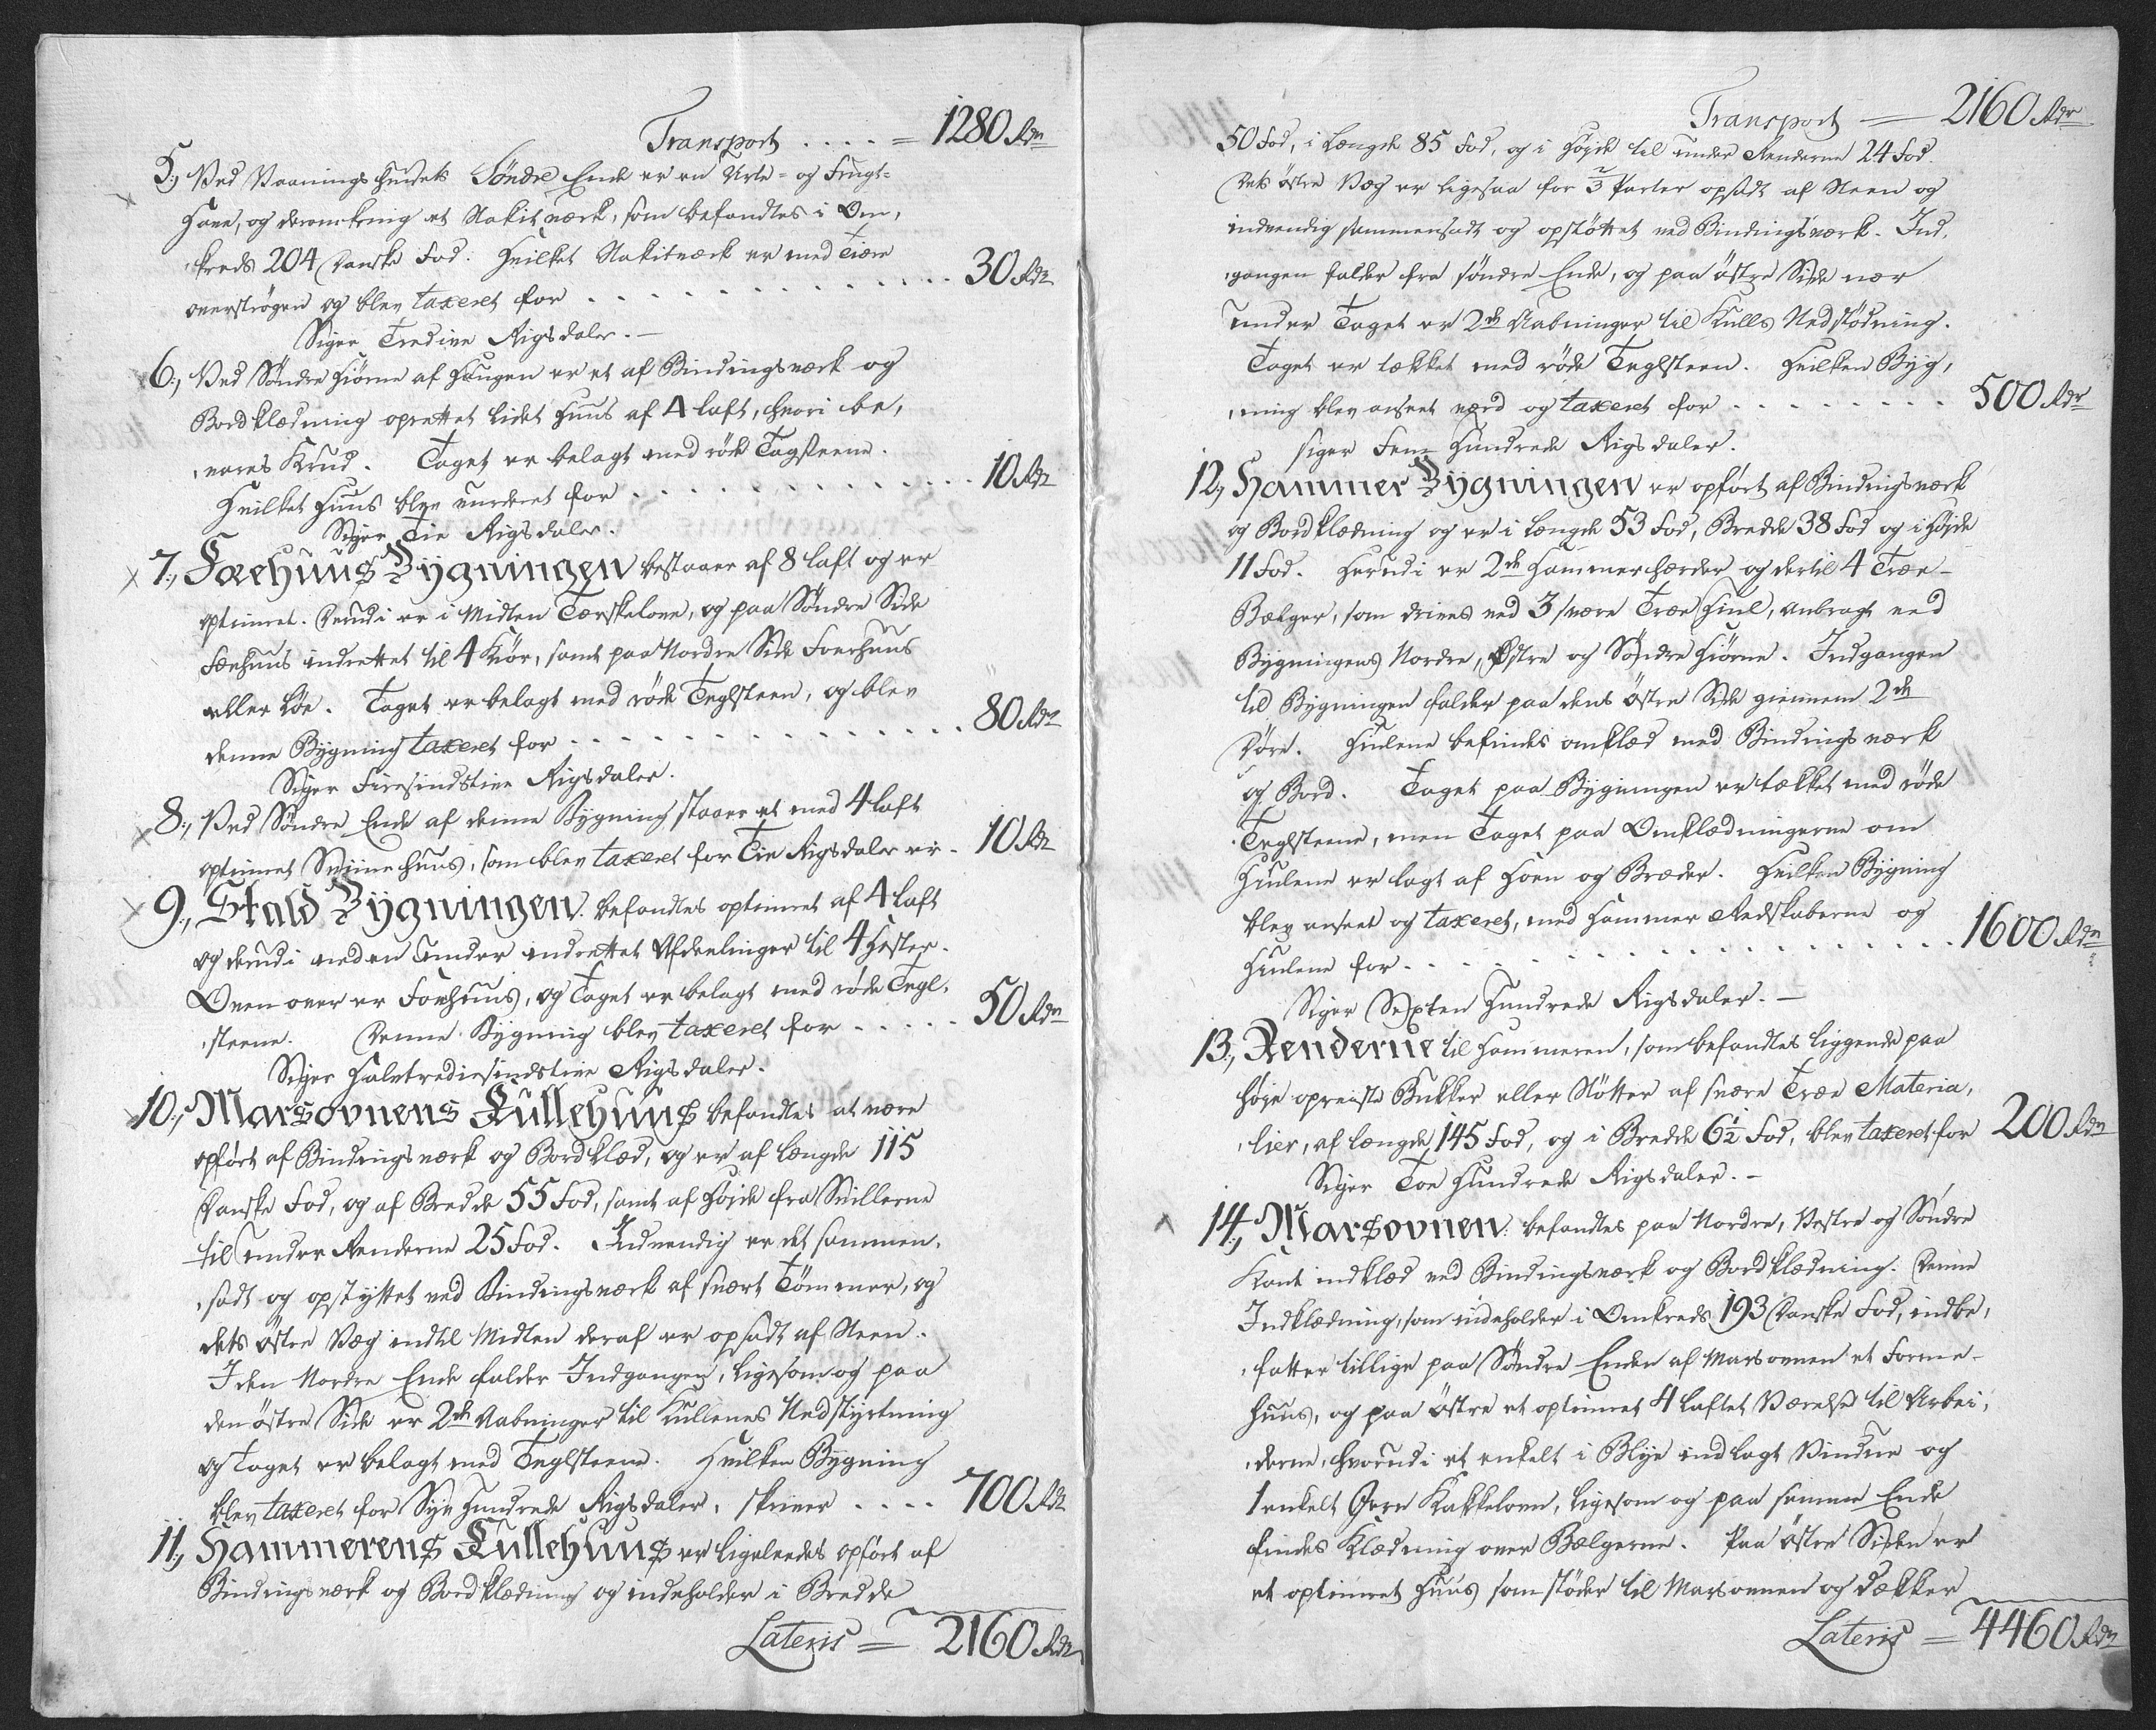 Transport . . . . = 1280 Rdr
5., Ved Vaaningshusets Söndre Ende er en Urte- og Frugt-
Have, og deromkring et Stakitværk, som befandtes i Om,
,kreds 204 Danske Fod. Hvilket Stakitværk er med Tiære
overströgen og blev taxeret for . . . . . . . . . . . 30 Rdr
Siger Tredive Rigsdaler. —
6., Ved Söndre Hiörne af Haugen er et af Bindingsværk og
Bordklædning oprettet lidet Huus af 4 laft, hvori be,
,vares Krud. Taget er belagt med röde Tagsteene.
Hvilket Huus blev vurderet for . . . . . . . . . . . 10 Rdr
Siger Tie Rigsdaler.
7., Faehuus Bygningen bestaaer af 8 laft og er
optimret. Derudi er i Midten Tærskelove, og paa Söndre Side
Fæehuus indrettet til 4 Kiör, samt paa Nordre Side Foerhuus
eller Löe. Taget er belagt med röde Teglsteen, og blev
denne Bygning taxeret for . . . . . . . . . . . . . . 80 Rdr
Siger Firesindstive Rigsdaler.
8., Ved Söndre Ende af denne Bygning staaer et med 4 laft
optimret Sviinehuus, som blev taxeret for Tie Rigsdaler er - 10 Rdr
9., Stald Bygningen. befandtes optimret af 4 laft
og derudi neden under indrettet Afdeelinger til 4 Hester.
Oven over er Foerhuus, og Taget er belagt med röde Tegl,
,steene. Denne Bygning blev taxeret for . . . . . 50 Rdr
Siger Halvtrediesindstive Rigsdaler.
10., Marsovnens Kullehuus befandtes at være
opfört af Bindingsværk og Bordklæd, og er af Længde 115
Danske Fod, og af Bredde 55 Fod, samt af Höjde fra Svillerne
til under Renderne 25 Fod. Indvendig er det sammen,
,sadt og opstyttet ved Bindingsværk af svært Tömmer, og
dets östre Væg indtil Midten deraf er opsadt af Steen.
I den Nordre Ende falder Indgangen, ligesom og paa
den östre Side er 2de Aabninger til Kullenes Nedstyrtning
og Taget er belagt med Teglsteene. Hvilken Bygning
blev taxeret for Syv Hundrede Rigsdaler, skriver . . . . 700 Rdr
11., Hammerens Kullehuus er ligeleedes opfört af
Bindingsværk og Bordklædning og indeholder i Bredde
Lateris = 2160 Rdr
Transport — 2160 Rdr
50 Fod, i Længde 85 Fod, og i Höjde til under Renderne 24 Fod.
Dets östre Væg er ligesaa for 2/3 Parter opsadt af Steen og
indvendig sammensadt og opstöttet ved Bindingsværk. Ind,
,gangen falder fra söndre Ende, og paa östre Side nær
under Taget er 2de Aabninger til Kulls Nedstödning.
Taget er tækket med röde Teglsteen. Hvilken Byg,
,ning blev anseet værd og taxeret for . . . . . . . . 500 Rdr
siger Fem Hundrede Rigsdaler.
12., Hammer Bygningen er opfört af Bindingsværk
og Bordklædning og er i Længde 53 Fod, Bredde 38 Fod og i Höjde
11 Fod. Herudi er 2de Hammerhærder og dertil 4 Træe-
Bælger, som drives ved 3 svære Træe Hiul, anbragt ved
Bygningens Nordre, Östre og Söndre Hiörne. Indgangen
til Bygningen falder paa dens östre Side giennem 2de
Döre. Hiulene befindes omklæd med Bindingsværk
og Bord. Taget paa Bygningen er tækket med röde
Teglsteene, men Taget paa Omklædningerne om
Hiulene er lagt af Hoen og Bræder. Hvilken Bygning
blev anseet og taxeret, med Hammer Redskaberne og
Hiulene for . . . . . . . . . . . . . . . . . 1600 Rdr
Siger Sexten Hundrede Rigsdaler. —
13., Renderne til Hammeren, som befandtes liggende paa
höje opreiste Bukker eller Stötter af svære Træe Materia,
,lier, af Længde 145 Fod, og i Bredde 6 1/2 Fod, blev taxeret for 200 Rdr
Siger Toe Hundrede Rigsdaler. -
14., Marsovnen. befandtes paa Nordre, Vestre og Söndre
Kant indklæd ved Bindingsværk og Bordklædning. Denne
Indklædning, som indeholder i Omkreds 193 Danske Fod, indbe,
,fatter tillige paa Söndre Ende af Marsovnen et Forme-
Huus, og paa östre et optimret 4 laftet Værelse til Arbei,
,derne, hvorudi et enkelt i Blye indlagt Vindue og
1 enkelt Jern Kakkelovn, ligesom og paa samme Ende
findes Klædning over Bælgerne. Paa östre Siden er
et optimret Huus som stöder til Marsovnen og dækker
Lateris = 4460 Rdr